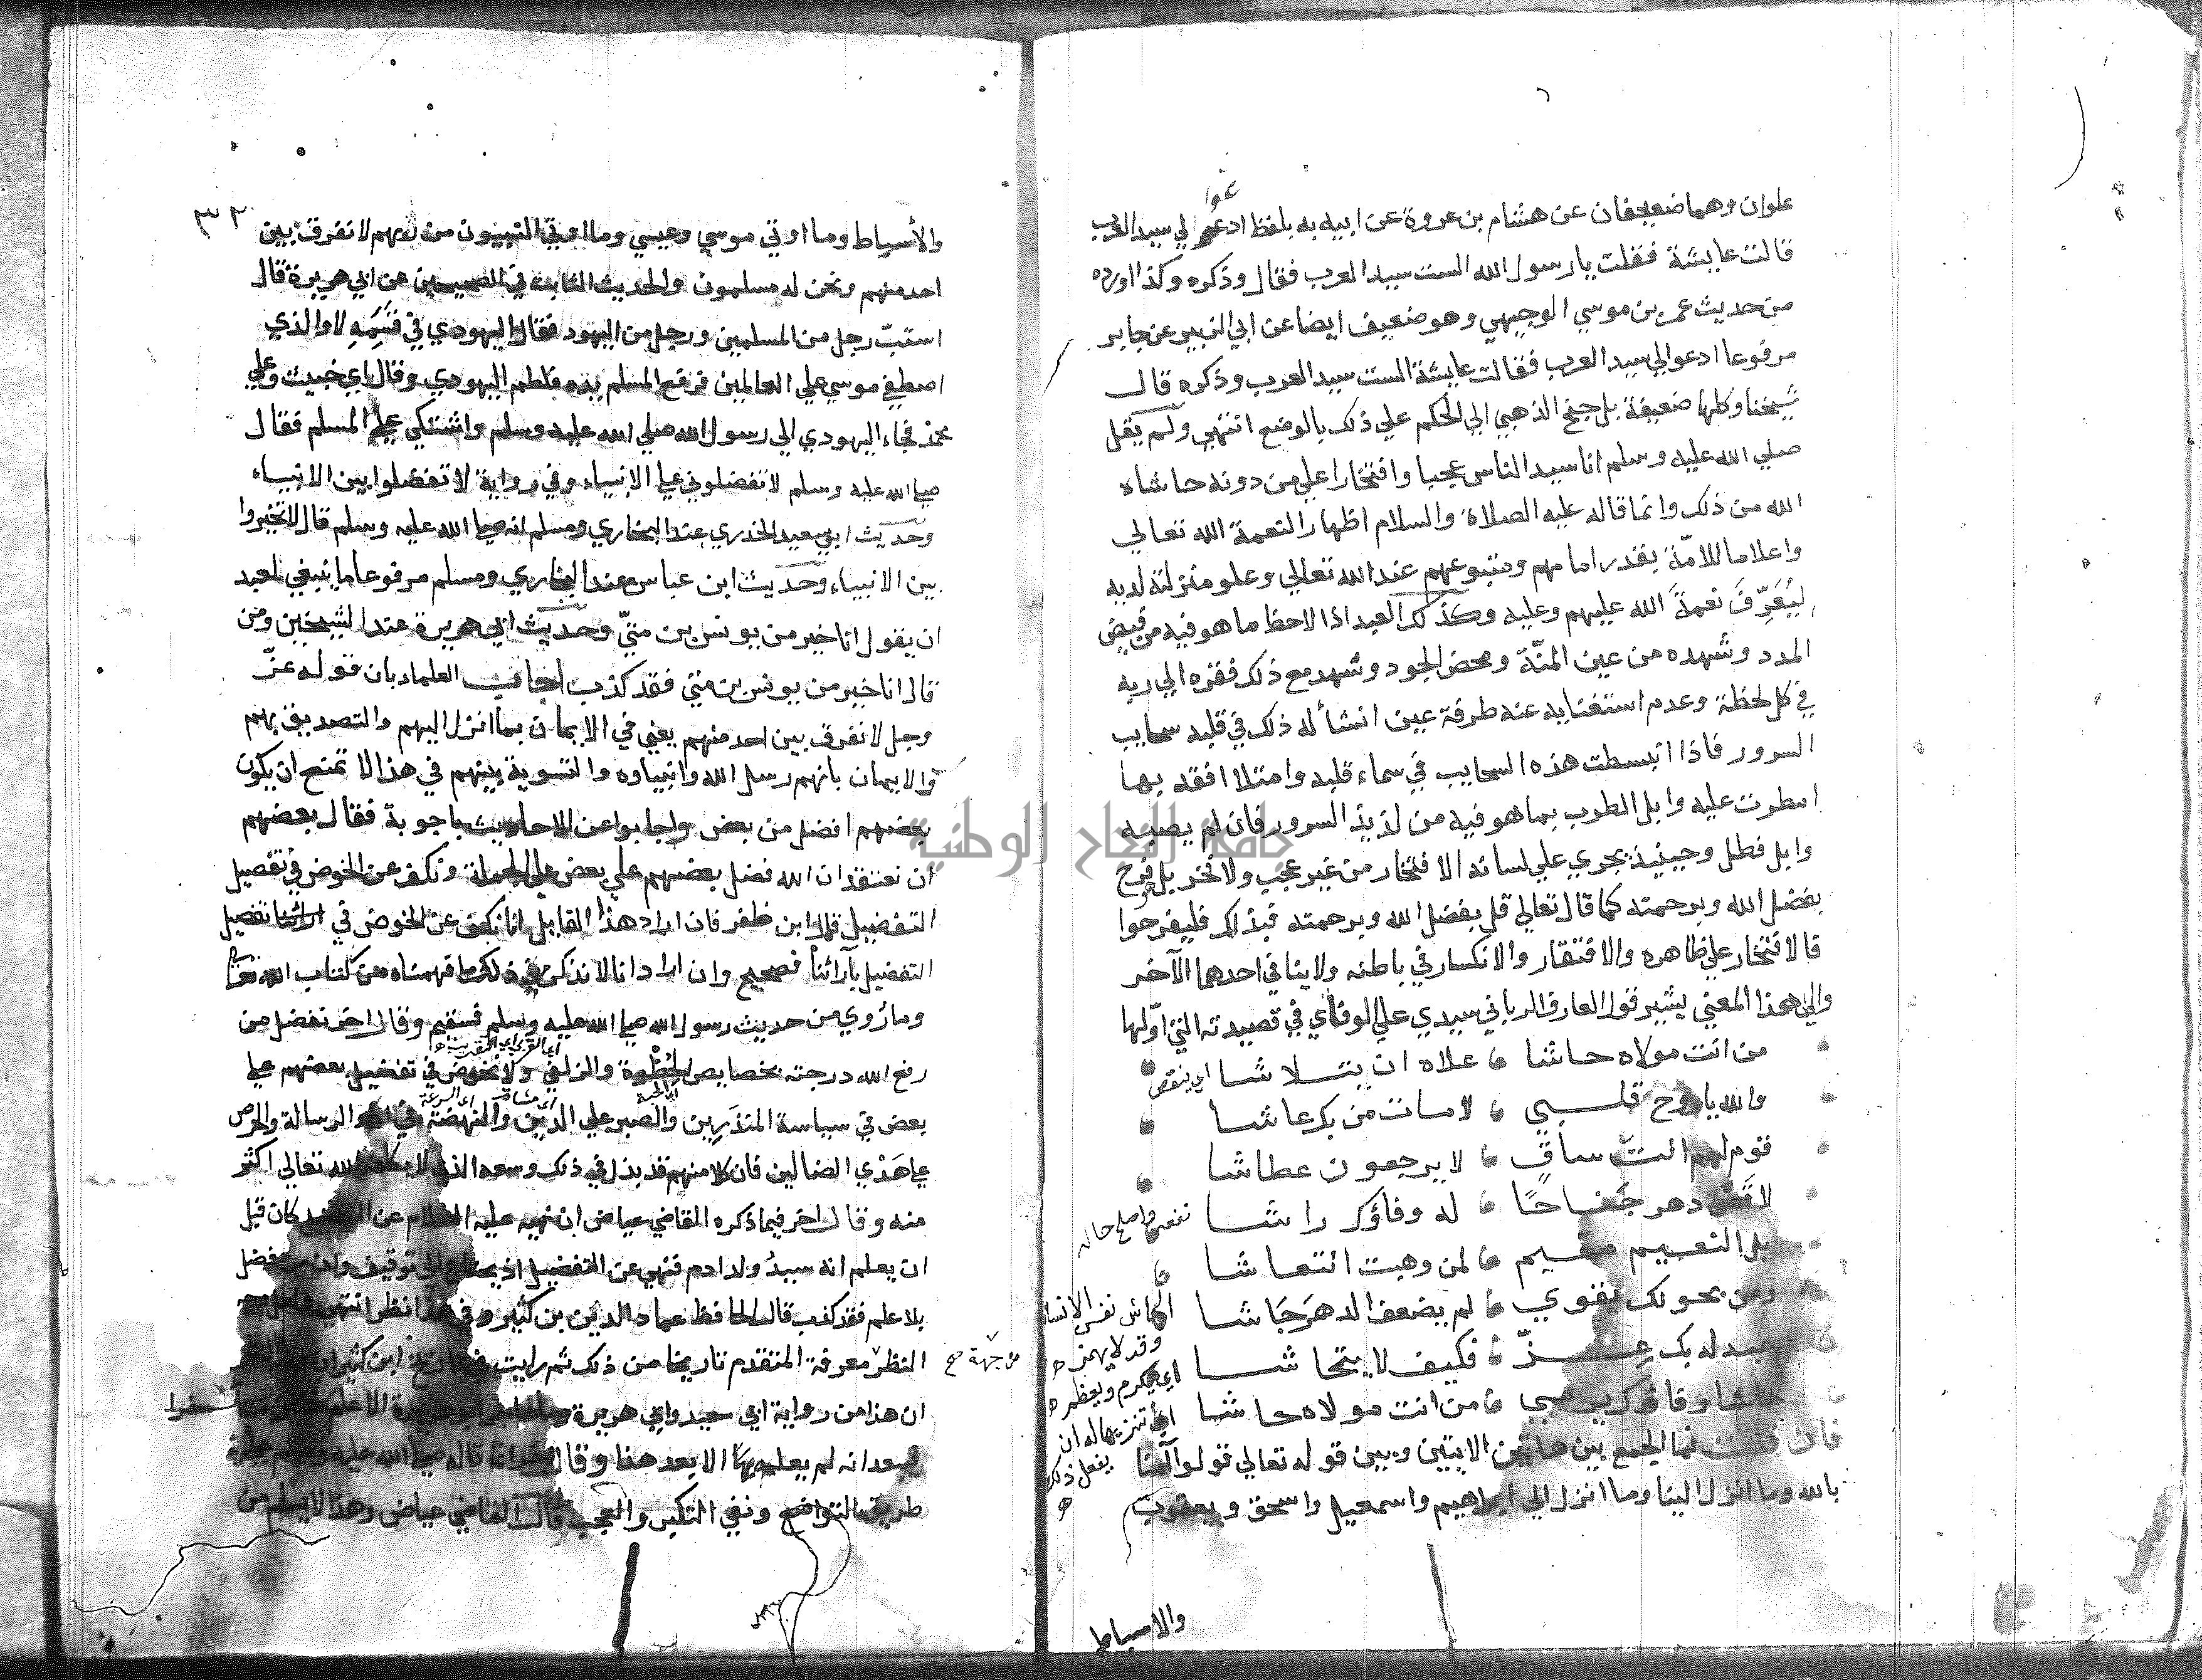 علوان وهما ضعيفان عن هشام بن عروة عن ابيه به بلفظ ادعوا لي سيد العرب
قالت عايشة فقلت يا رسول الله الست سيد العرب فقال وذكره وكذا اورده
من حديث عمر بن موسي الوجيهي وهو ضعيف ايضا عن ابي الزبير عن جابر
مرفوعا ادعوا لي سيد العرب فقالت عايشة الست سيد العرب وذكره قال
شيخنا وكلها ضعيفة بل جنح الذهبي الي الحكم علي ذلك بالوضع انتهي ولم يقل
صلي الله عليه وسلم انا سيد الناس عجبا وافتخارا علي من دونه حاشاه
الله من ذلك وانما قاله عليه الصلاة والسلام اظهارا لنعمة الله تعالي
واعلاما للامّة بقدر امامهم ومتبوعهم عند الله تعالي وعلو منزلته لديه
ليُعَرِّفَ نعمةَ الله عليهم وعليه وكذلك العبد اذا لاحظ ما هو فيه من فيض
المدد وشهده من عين المنّة ومحض الجود وشهد مع ذلك فقره الي ربه
في كل لحظة وعدم استغنايه عنه طرفة عين انشأ له ذلك في قلبه سحايب
السرور فاذا انبسطت هذه السحايب في سماء قلبه وامتلا افقه بها
امطرت عليه وابل الطرب بما هو فيه من لذيذ السرور فان لم يصبه
وابل فطل وحينيذ يجري علي لسانه الافتخار من غير عجب ولا فخر بل فرح
بفضل الله وبرحمته كما قال تعالي قل بفضل الله وبرحمته فبذلك فليفرحوا
فالافتخار علي ظاهره والافتقار والانكسار في باطنه ولا ينافي احدهما الآخر
والي هذا المعني يشير قول العارف الرباني سيدي علي الوفاي في قصيدته التي اوّلها
من انت مولاه حاشا علاه ان يتلاشا اي ينقص
والله يا روح قلبي لا مات من بك عاشا
قوم لهم انت ساقٍ لا يرجعون عطاشا
لا قَصّ دهر جَناحًا له وفاؤك راشا
نفعه واصلح حاله
بك النعيم مقيم لمن وهبت انتعاشا
ومن بحولك يقوي لم يضعف الدهر جَاشا
الجاش نفس الانسان
وقد لا يهمز
عبد له بك عِزّ فكيف لا يتحاشا
اي يكرم ويعظم
حاشا وفاؤك يرمي من انت مولاه حاشا
اي تنزيها له ان
يفعل ذلك
فان قلت فما الجمع بين هاتين الايتين وبين قوله تعالي قولوا آمنا
بالله وما انزل الينا وما انزل الي ابراهيم واسمعيل واسحق ويعقوب
والاسباط
٣٢
والأسباط وما اوتي موسي وعيسي وما اوتي النبييون من ربهم لا نفرق بين
احد منهم ونحن له مسلمون والحديث الثابت في الصحيحين عن ابي هريرة قال
استبّ رجل من المسلمين ورجل من اليهود فقال اليهودي في قَسَمِهِ لا والذي
اصطفي موسي علي العالمين فرفع المسلم يده فلطم اليهودي وقال اي خبيث وعلي
محمد فجاء اليهودي الي رسول الله صلي الله عليه وسلم واشتكي علي المسلم فقال
صلي الله عليه وسلم لا تفضلوني علي الانبياء وفي رواية لا تفضلوا بين الانبياء
وحديث ابي سعيد الخدري عند البخاري ومسلم انه صلي الله عليه وسلم قال لا تخيروا
بين الانبياء وحديث ابن عباس عند البخاري ومسلم مرفوعا ما ينبغي لعبد
ان يقول انا خير من يونس بن متيّ وحديث ابي هريرة عند الشيخين ومن
قال انا خير من يونس بن متي فقد كذب اجاب العلماء بان قوله عزّ
وجل لا نفرق بين احد منهم يعني في الايمان بما انزل اليهم والتصديق بهم
والايمان بانهم رسل الله وانبياوه والتسوية بينهم في هذا لا تمنع ان يكون
بعضهم افضل من بعض واجابوا عن الاحاديث باجوبة فقال بعضهم
ان نعتقد ان الله فضل بعضهم علي بعض علي الجملة ونكف عن الخوض في تفصيل
التفضيل قال ابن ظفر فان اراد هذا القايل انا نكف عن الخوض في تفصيل
التفضيل بآرائنا فصحيح وان اراد انا لا نذكر في ذلك ما فهمناه من كتاب الله
وما رُوي من حديث رسول الله صلي الله عليه وسلم فسقيم وقال اخر نفضل من
رفع الله درجته بخصايص الحُظوة والزلفي ولا نخوض في تفضيل بعضهم علي
بعض في سياسة المنذَرين والصبر علي الدين والنهضة في اداء الرسالة والحرص
علي هَدْي الضالين فان كلا منهم قد بذل في ذلك وسعه الذي لا يكلفه الله تعالي اكثر
منه وقال اخر فيما ذكره القاضي عياض ان نهيه عليه السلام عن التفضيل كان قبل
ان يعلم انه سيدُ ولد ادم فنهي عن التفضيل اذ يحتاج الي توقيف وان من فضل
بلا علم فقد كذب قال الحافظ عماد الدين بن كثير وفي هذا نظر انتهي
النظر من جهة معرفة المتقدم تاريخا من ذلك ثم رايت في تاريخ ابن كثير ان
ان هذا من رواية ابي سعيد وابي هريرة وما هاجر ابو هريرة الا عام
فيبعد انه لم يعلمه بهذا الا بعد هذا وقال اخر انما قاله صلي الله عليه وسلم علي
طريق التواضع ونفي التكبر والعجب قال القاضي عياض وهذا لا يسلم من